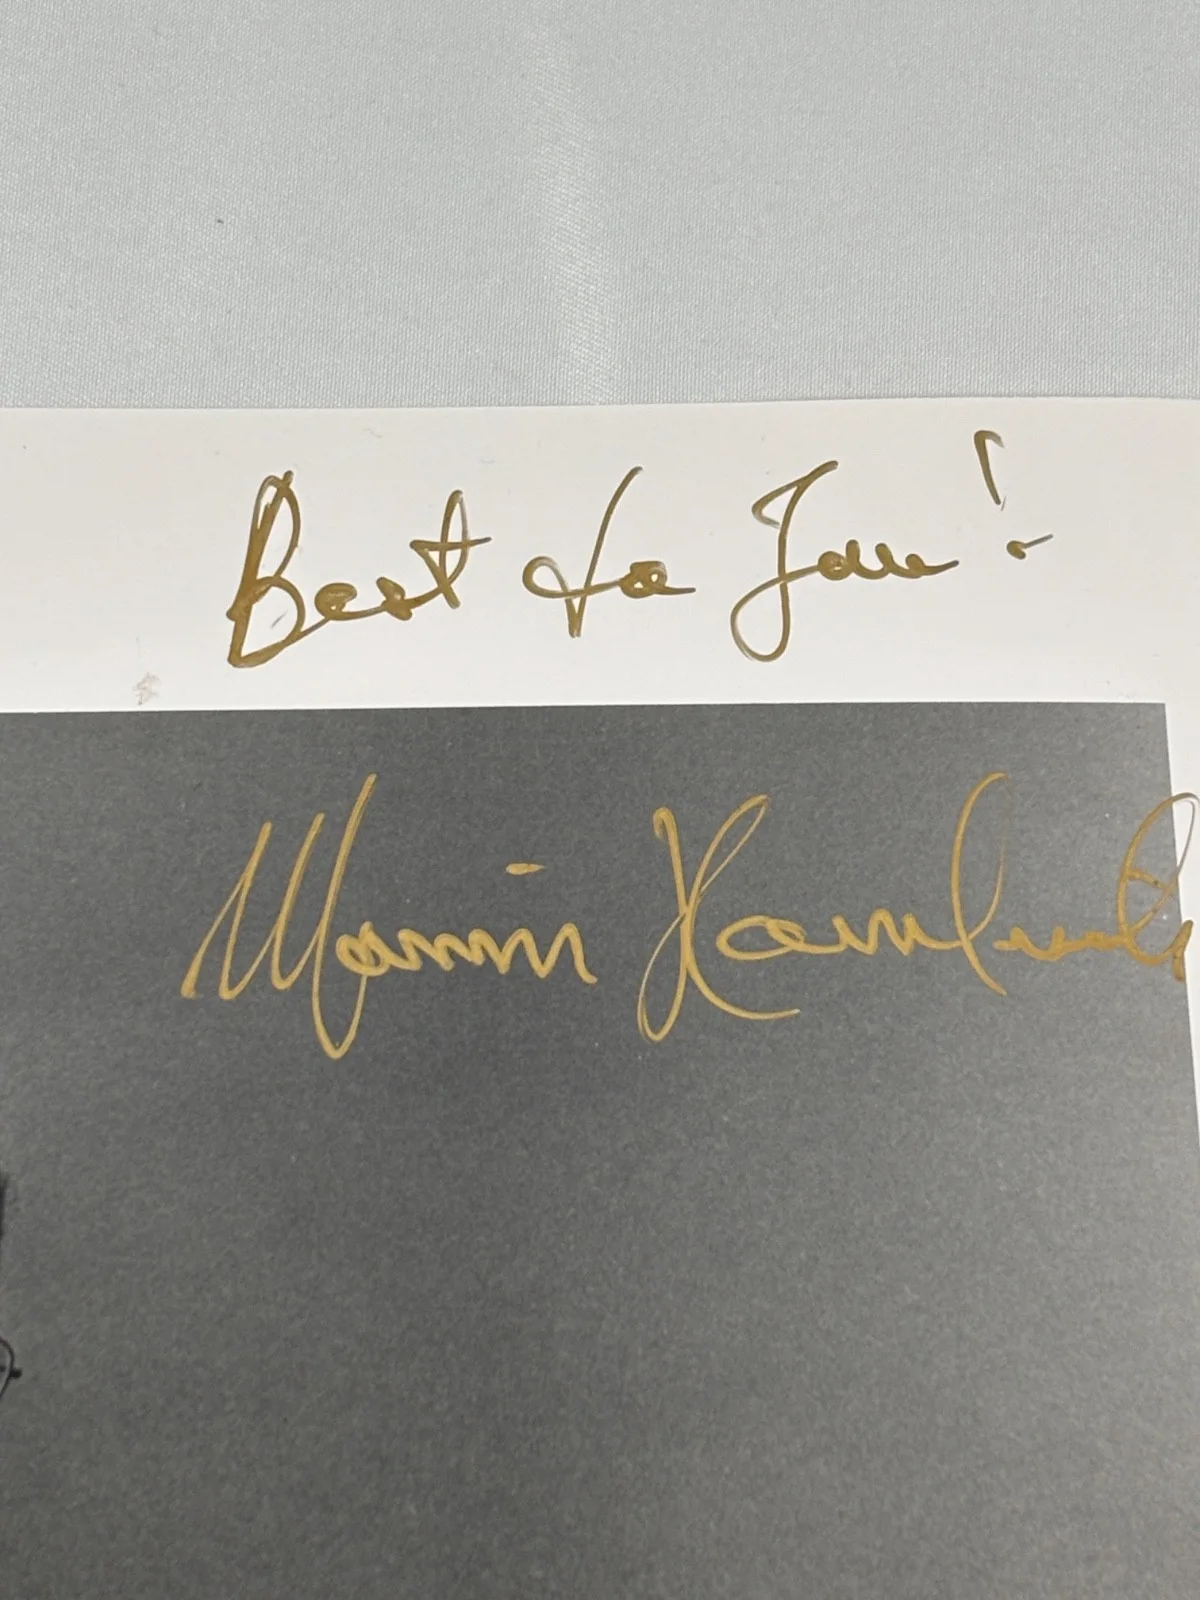 Best to You!
Marvin Hamlisch